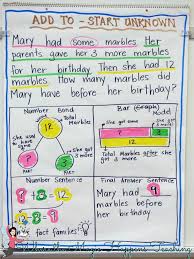 ADD TO - START UNKNOWN
Mary had some marbles. Her
parents gave her 3 more marbles
for her birthday. Then she had 12
marbles. How many marbles did
Mary have before her birthday?
Number Bond
Bar (Graph) Model
12
Total Marbles
?
3
PART
PART
?
3
12
Total Marbles after she
got 3 more
Number Sentence
Final Answer Sentence
? + 3 = 12
12 - 3 = 9
fact families
Mary had 9
marbles
before her
birthday